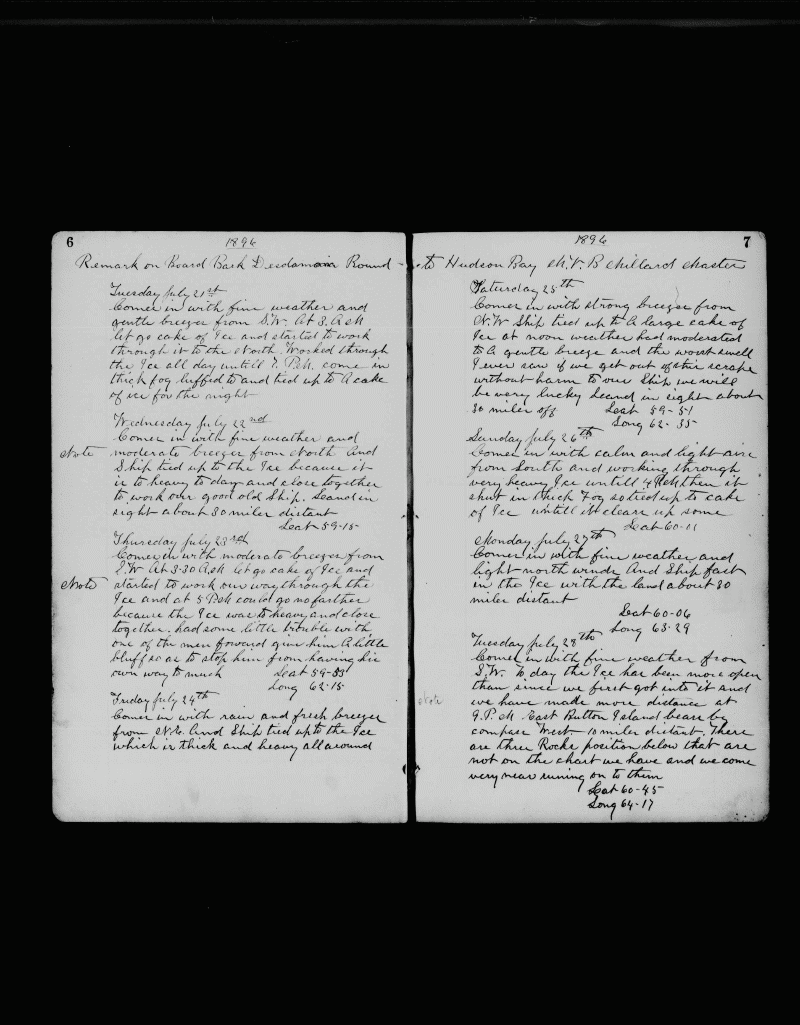 6
1896
Remark on Board Bark Desdamoia Round
Tuesday July 21st
Comes in with fine weather and
gentle breezes from S.W. At 3. A.M
let go cake of Ice and started to work
through it to the North Worked through
the Ice all day untill 7. P.M. come in
thick fog luffed to and tied up to A cake
of ice for the night
Wednesday July 22nd
Comes in with fine weather and
Note moderate breezes from North And
Ship tied up to the Ice because it
is to heavy to day and close together
to work our good old Ship. Leand in
sight about 30 miles distant
Leat 59-15
Thursday July 23rd
Comes in with moderate breezes from
S.W At 3-30 A.M let go cake of Ice and
Note started to work our way through the
Ice and at 5 P.M could go no farther
because the Ice was to heavy and close
together. had some little trouble with
one of the men forward give him A little
bluff so as to stop him from having his
own way to much Leat 59-33
Long 62-15
Friday July 24th
Comes in with rain and fresh breezes
from N.E. And Ship tied up to the Ice
which is thick and heavy all around
1896
7
to Hudson Bay M.V.B Millard Master
Saturday 25th
Comes in with strong breezes from
N.W Ship tied up to A large cake of
Ice at noon weather had moderated
to A gentle breeze and the worst swell
I ever saw if we get out of this scrape
without harm to our Ship we will
be very lucky Leand in sight about
30 miles off Leat 59-51
Long 62-35
Sunday July 26th
Comes in with calm and light airs
from South and working through
very heavy Ice untill 4 P.M, then it
shut in thick Fog so tied up to cake
of Ice untill it clears up some
Leat 60-11
Monday July 27th
Comes in with fine weather and
light north winds And Ship fast
in the Ice with the land about 30
miles distant
Leat 60-06
Long 63-29
Tuesday July 28th
Comes in with fine weather from
S.W. To day the Ice has been more open
than since we first got into it and
Note we have made more distance at
6. P.M. East Button Island bears by
compass West 10 miles distant. There
are three Rocks position below that are
not on the chart we have and we come
very near runing on to them
Leat 60-45
Long 64-17